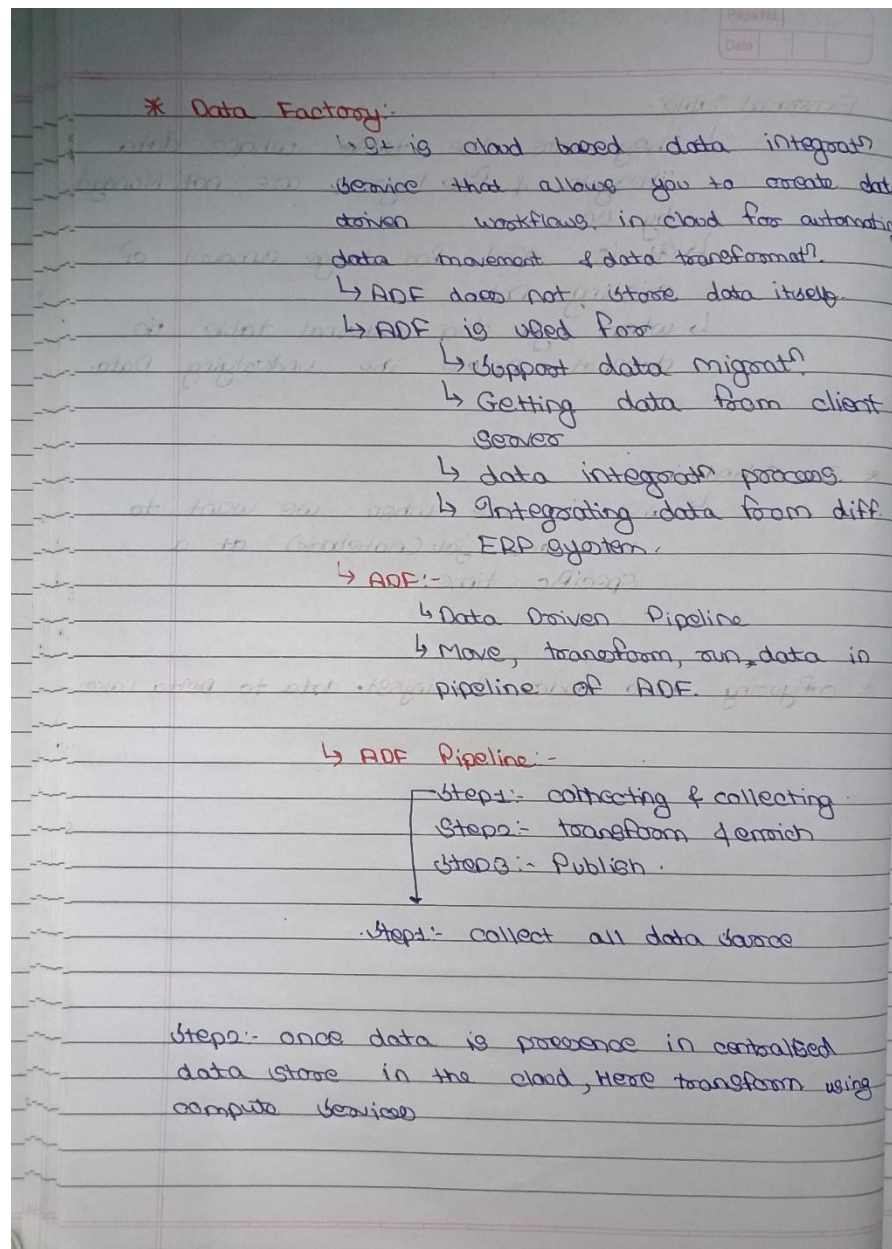 Page No.
Date
* Data Factory:-
↳ It is cloud based data integratn
service that allows you to create dat
driven workflows in cloud for automatic
data movement & data transformatn.
↳ ADF does not store data itself.
↳ ADF is used for
↳ Support data migratn
↳ Getting data from client
server
↳ data integratn process.
↳ Integrating data from diff.
ERP system.
↳ ADF:-
↳ Data Driven Pipeline
↳ Move, transform, run data in
pipeline of ADF.
↳ ADF Pipeline:-
Step1:- connecting & collecting
Step2:- transform & enrich
Step3:- Publish.
Step1:- collect all data source
Step2:- once data is presence in centralised
data store in the cloud, Here transform using
compute services